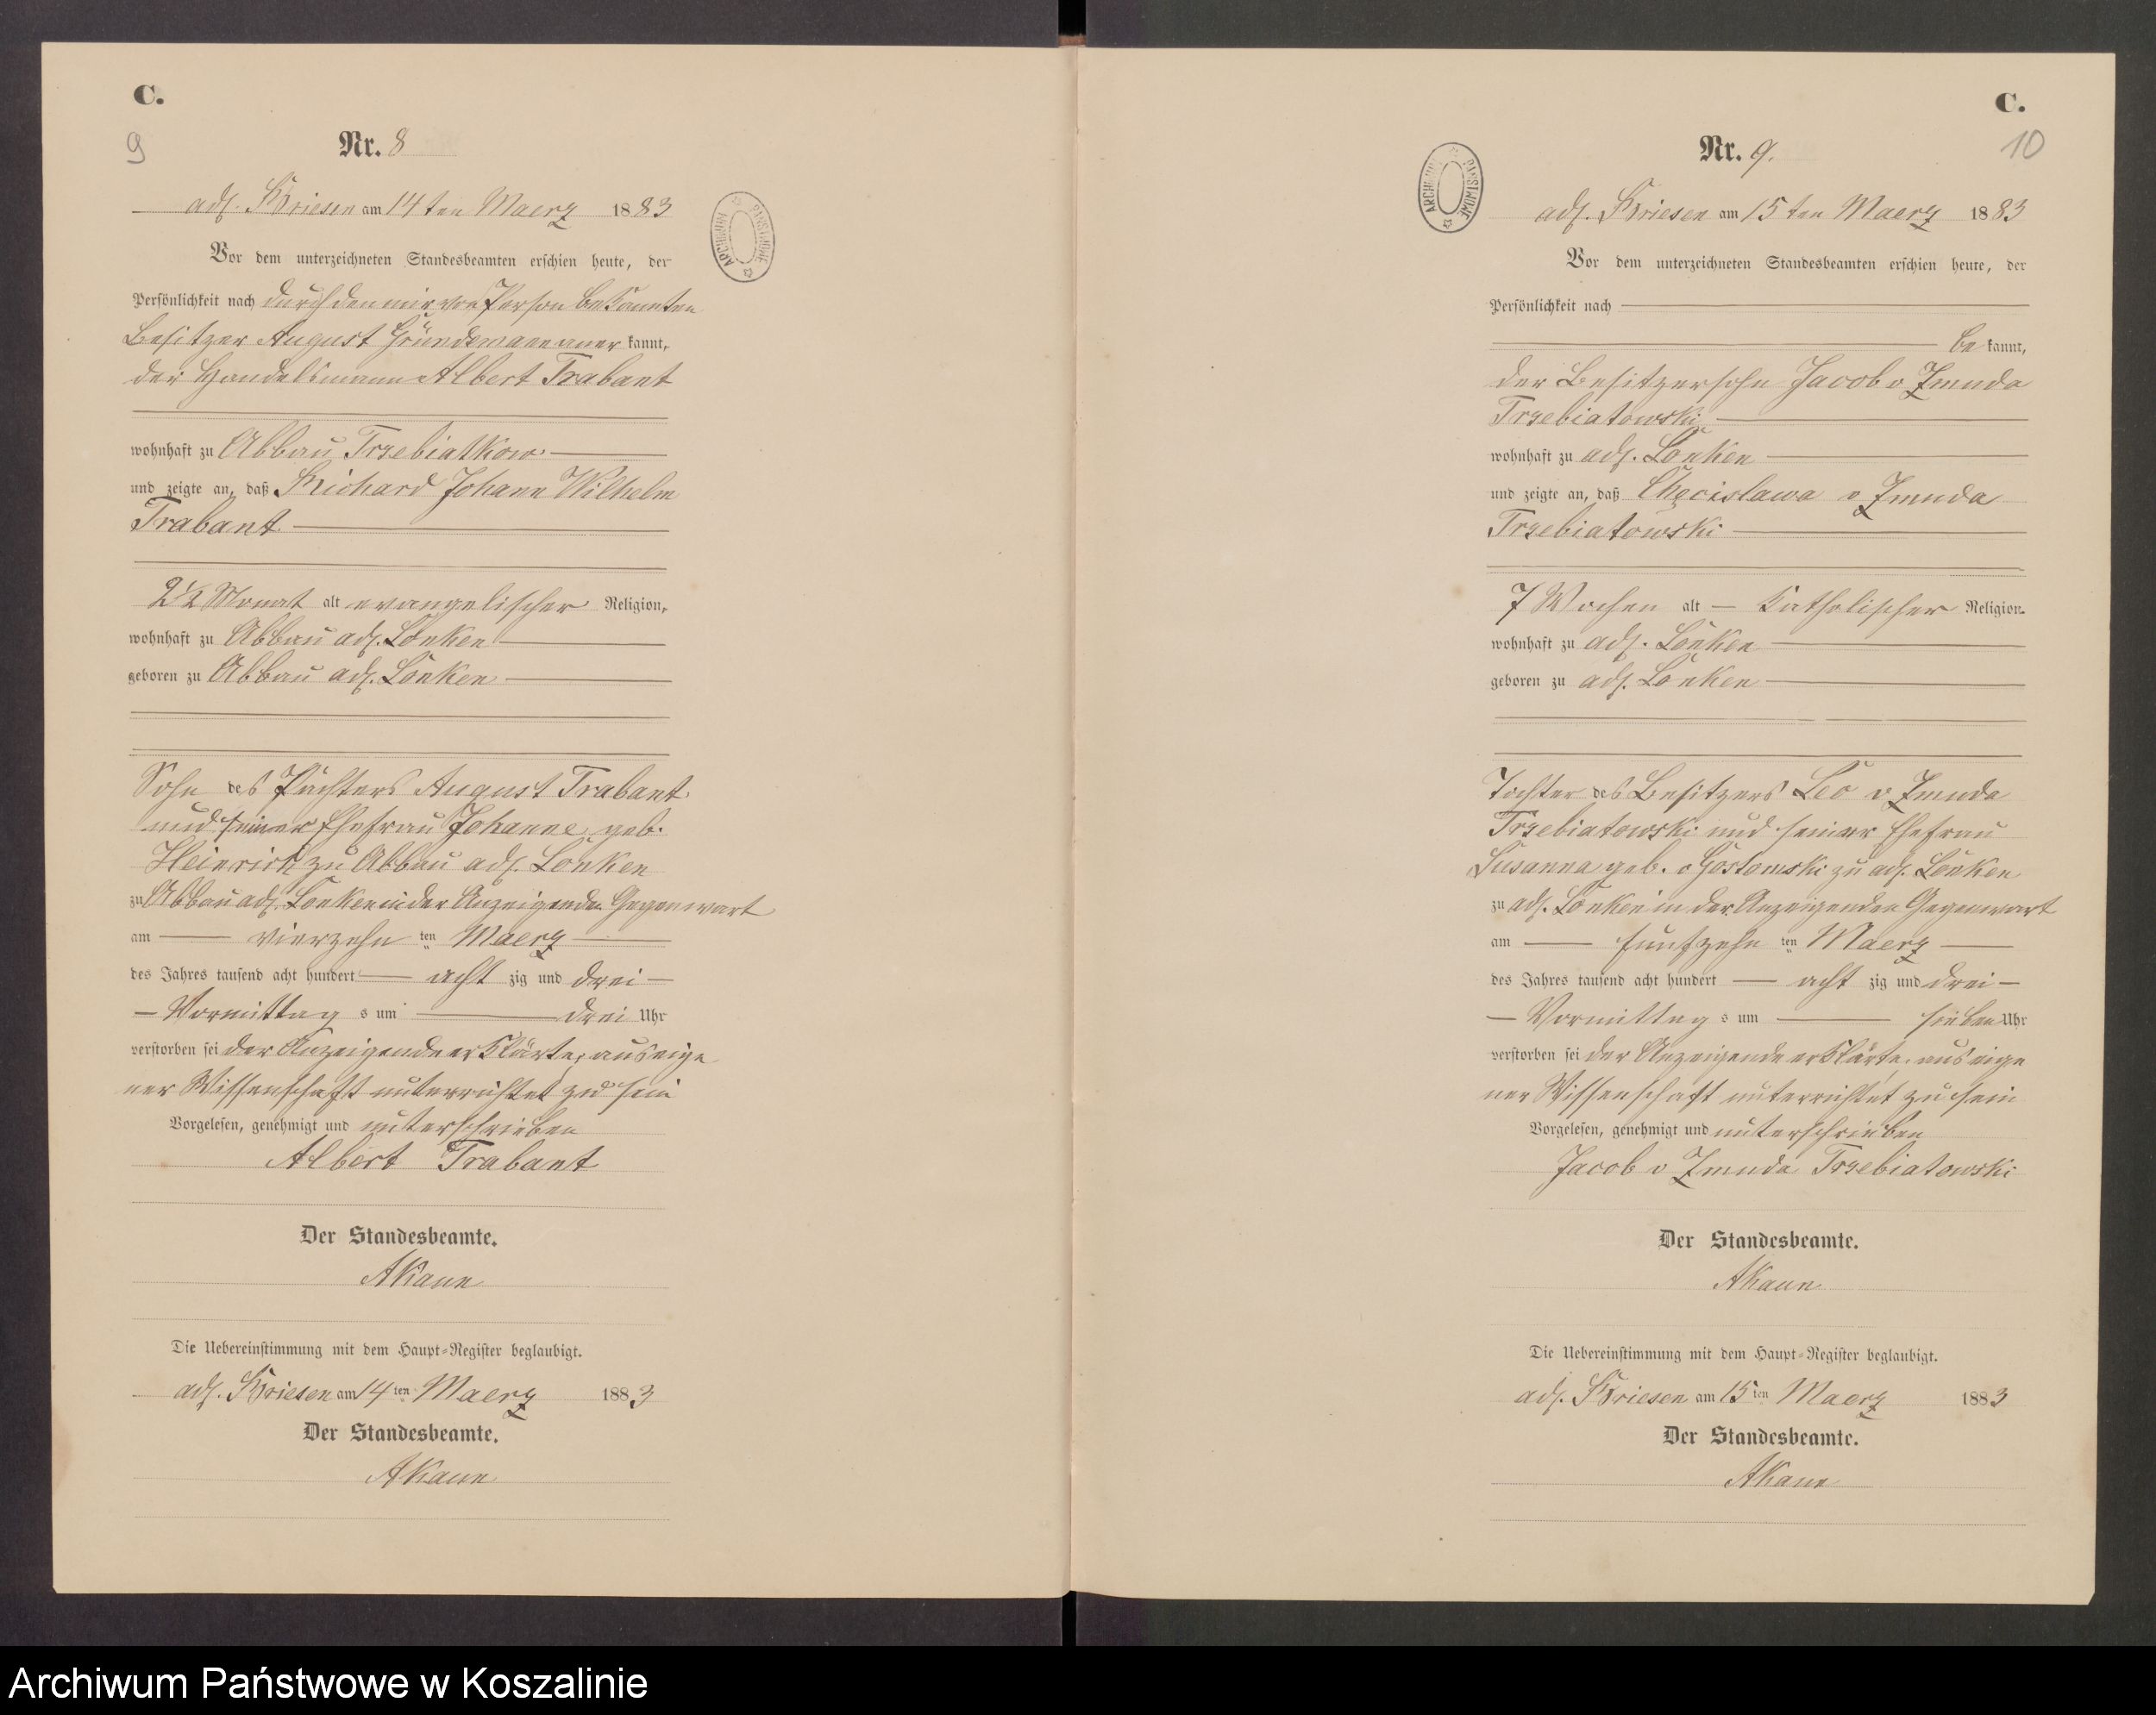 C.
9
Nr. 8
adl. Briesen am 14ten Maerz 1883
Vor dem unterzeichneten Standesbeamten erschien heute, der
Persönlichkeit nach durch den mir von Person bekannten
Besitzer August Gründemann aner kannt,
der Handelsmann Albert Trabant
wohnhaft zu Abbau Trzebiatkow
und zeigte an, daß Richard Johann Wilhelm
Trabant
2 1/2 Monat alt evangelischer Religion,
wohnhaft zu Abbau adl. Lonken
geboren zu Abbau adl. Lonken
Sohn des Pächters August Trabant
und seiner Ehefrau Johanne geb.
Heinrich zu Abbau adl. Lonken
zu Abbau adl. Lonken in der Anzeigenden Gegenwart
am vierzehn ten Maerz
des Jahres tausend acht hundert acht zig und drei
Vormittag s um drei Uhr
verstorben sei der Anzeigende erklärte, aus eige
ner Wissenschaft unterrichtet zu sein
Vorgelesen, genehmigt und unterschrieben
Albert Trabant
Der Standesbeamte.
AKaun
Die Uebereinstimmung mit dem Haupt-Register beglaubigt.
adl. Briesen am 14ten Maerz 1883
Der Standesbeamte.
AKaun
C.
10
Nr. 9.
ARCHIWUM PAŃSTWOWE
adl. Briesen am 15ten Maerz 1883
Vor dem unterzeichneten Standesbeamten erschien heute, der
Persönlichkeit nach
be kannt,
der Besitzersohn Jacob v Zmuda
Trzebiatowski
wohnhaft zu adl. Lonken
und zeigte an, daß v Zmuda
Trzebiatowski
7 Wochen alt – katholischer Religion.
wohnhaft zu adl. Lonken
geboren zu adl. Lonken
Tochter des Besitzers Leo v Zmuda
Trzebiatowski und seiner Ehefrau
Susanna geb. v Gostomski zu adl. Lonken
zu adl. Lonken in der Anzeigenden Gegenwart
am fünfzehn ten Maerz
des Jahres tausend acht hundert acht zig und drei
Vormittag s um sieben Uhr
verstorben sei der Anzeigende erklärte, aus eige
ner Wissenschaft unterrichtet zu sein
Vorgelesen, genehmigt und unterschrieben
Jacob v Zmuda Trzebiatowski
Der Standesbeamte.
AKaun
Die Uebereinstimmung mit dem Haupt-Register beglaubigt.
adl. Briesen am 15ten Maerz 1883
Der Standesbeamte.
AKaun
Archiwum Państwowe w Koszalinie